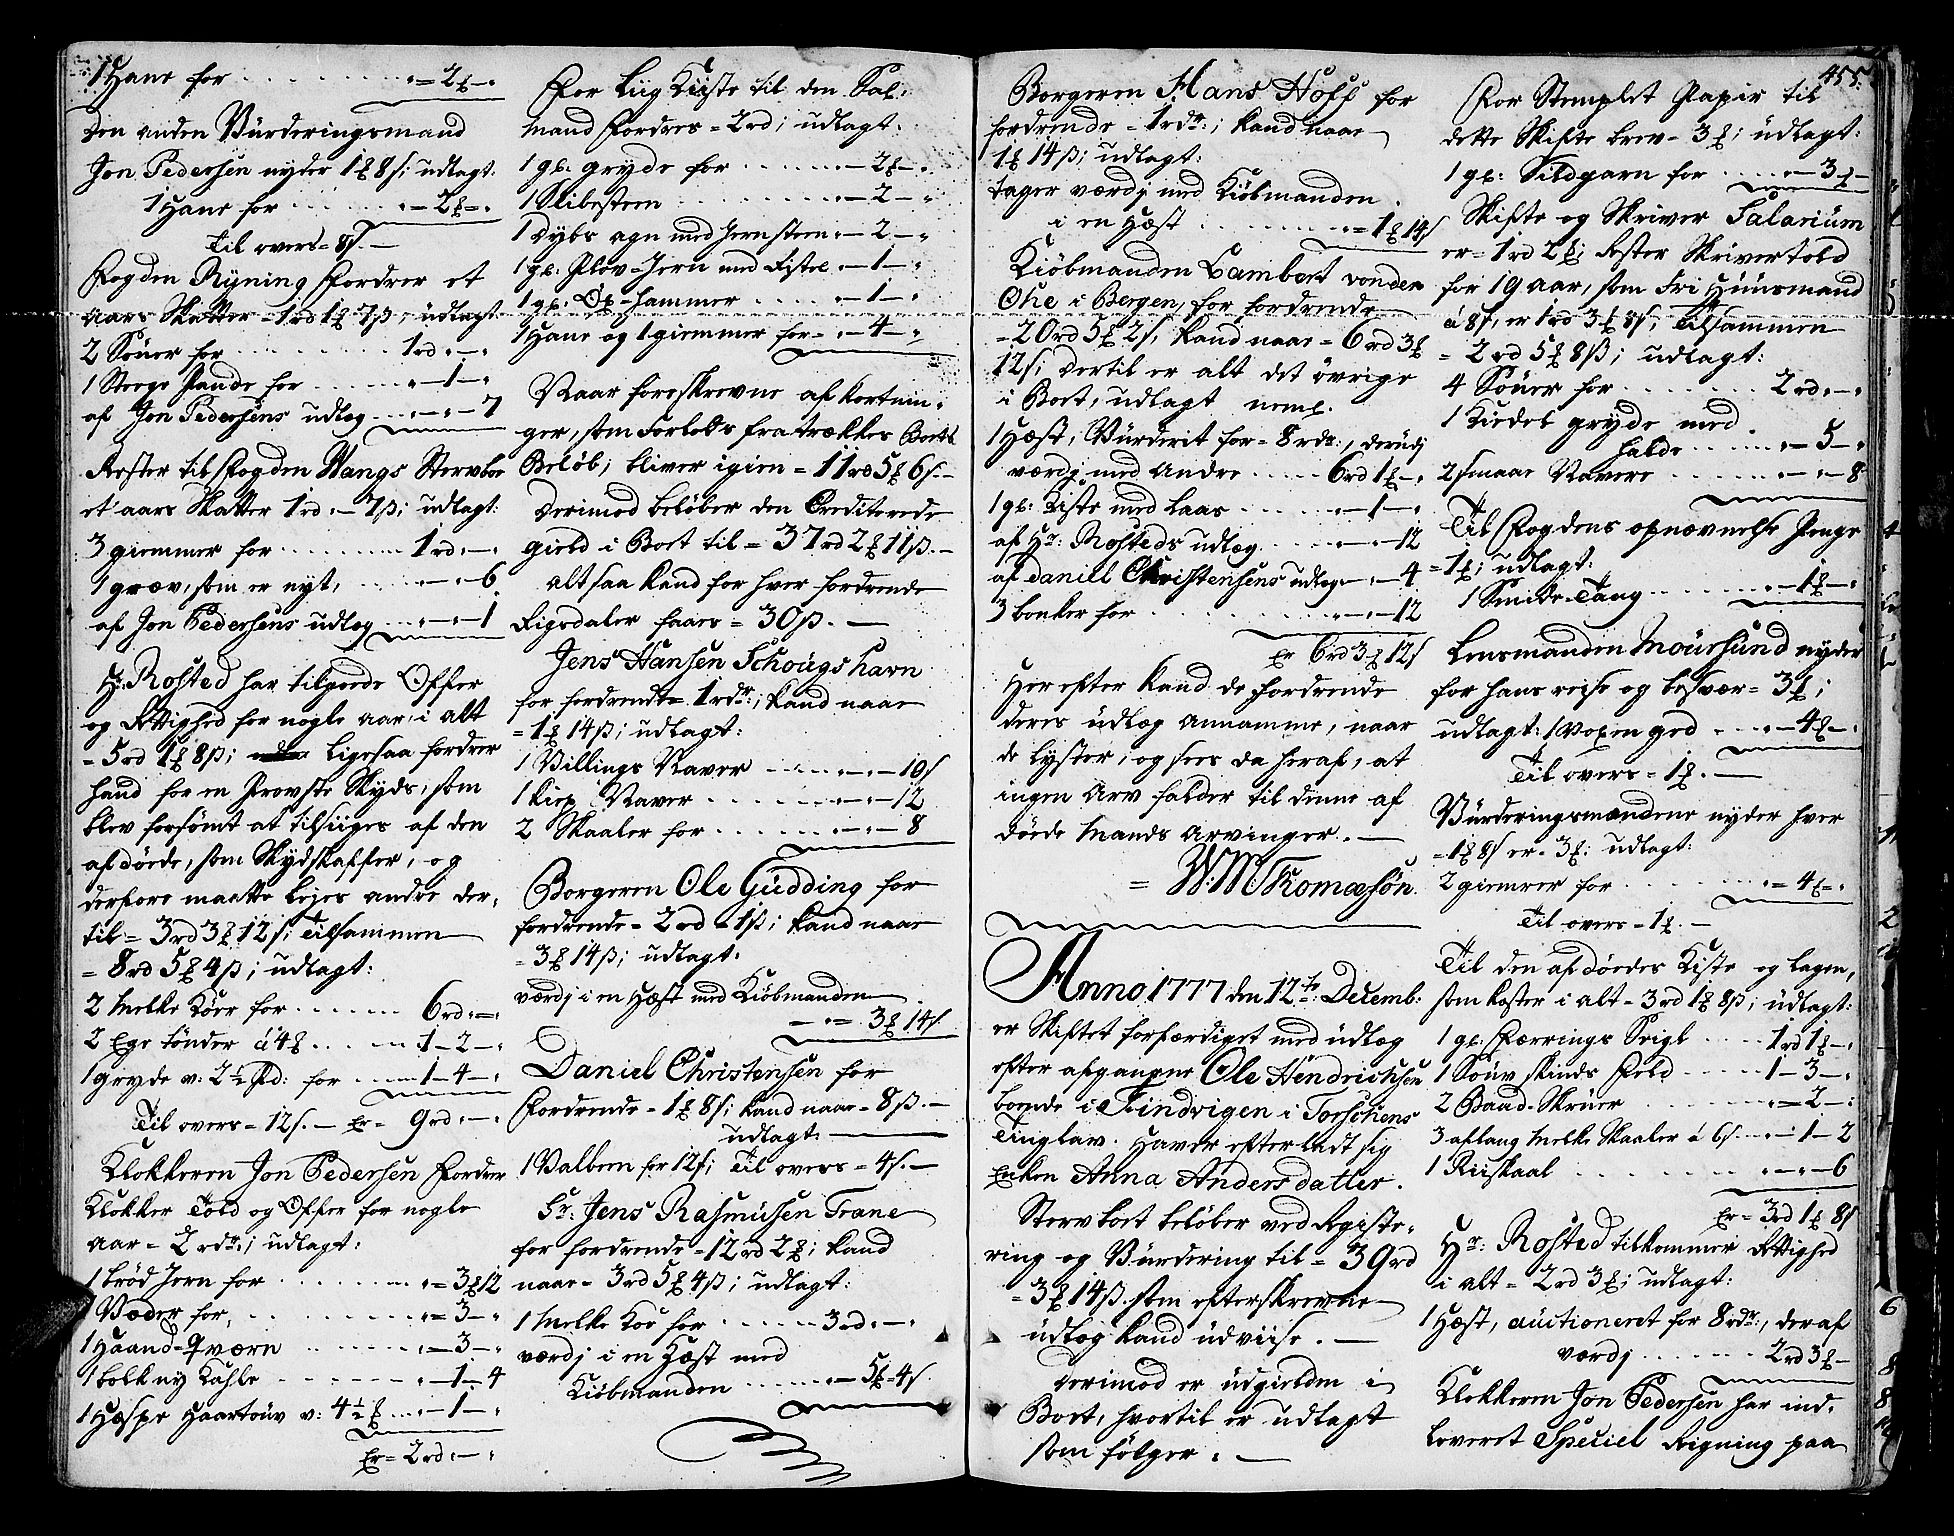 1 Hane for . . . . . . . „ = 2₰ – „
Den anden Vürderingsmand
Jon Pedersen nyder 1₰ 8s; udlagt.
1 Hane for . . . . . „ = 2₰ = „
Til overs = 8s. –
Fogden Ryning Fordrer et
aars Skatter = 1rd 1₰ 7ß; üdlagt
2 Söuer for . . . . . . . 1rd „ – „
1 Steege Pande for . . . . . „ – 1 – „
af Jon Pedersens udlæg . . . „ – „ – 7
Rester til Fogden Wangs Stervboe
et aars Skatter 1rd „ – 7ß; udlagt:
3 giemmer for . . . . . . 1rd „ – „
1 græv, som er nyt, . . . . „ – „ – 6
af Jon Pedersens udlæg . . . „ – „ – 1
Hr: Rosted har tilgode Offer
og Rettighed for nogle aar, i alt
= 5rd 1₰ 8ß; Ligesaa fordrer
hand for en Provste Skyds, som
blev forsömt at tilsiiges af den
afdöede, som Skydskaffer, og
derfore maatte lejes andre der,
til = 3rd 3₰ 12s; Tilsammen
= 8rd 5₰ 4ß; udlagt:
2 Melke Köer for . . . . . . 6rd „ – „
2 Ege tönder á 4₰ . . . . . 1 – 2 – „
1 gryde v: 2½ Pd: for . . . . 1 – 4 – „
Til overs = 12s. – Er = 9rd „ – „
Klokkeren Jon Pedersen Fordrer
Klokker Told og Offer for nogle
aar = 2rdr; udlagt:
1 bröd Jern for . . . . . . . „ = 3₰ 12
1 Væder for, . . . . . . . „ = 3 – „
1 Haand-Qværn . . . . . . „ – 3 – „
1 bolk ny Kahle . . . . . . „ – 1 – 4
1 Hespe Haartouv v: 4½ ₰ . . . „ – 1 – „
Er = 2rd „ – „
For Liig Kiiste til den Sal:
Mand Fordres = 2rd; udlagt:
1 gl: gryde for . . . . . . „ – 2₰ – „
1 Slibesteen . . . . . . . „ – 2 – „
1 Dybs agn med Jernsteen „ – 2 – „
1 gl: Plov-Jern med Fistel „ – 1 – „
1 gl: Öx-hammer . . . . „ – 1 – „
1 Hane og 1 giemmer for = „ – 4 – „
Naar foreskrevne afkortnin-
ger, som Forlods fratrækkes Boets
Beløb; bliver igien = 11rd 5₰ 6s. –
Derimod beløber den Crediterede
gield i Boet til = 37rd 2₰ 11ß. –
altsaa kand for hver fordrende
Rigsdaler faaes = 30ß. –
Jens Hansen Schougshavn
for fordrende = 1rdr:; kand naae
= 1₰ 14ß; udlagt:
1 Villings Naver . . . . . „ – „ – 10s
1 Kiep Naver . . . . . . . „ – „ – 12
2 Skaaler for . . . . . . . „ – „ – 8
Borgeren Ole Gudding for
fordrende = 2rd = 1ß; kand naae
= 3₰ 14ß; udlagt:
værdj i en Hest med Kiöbmanden
– „ = 3₰ 14s.
Daniel Christensen for
Fordrende = 1₰ 8s; kand naae = 8ß. –
udlagt: –
1 Valbem for 12s; Til overs = 4s. –
Sr: Jens Rasmusen Trane
for fordrende = 12rd 2₰; kand
naae = 3rd 5₰ 4ß; udlagt:
1 Melke Koe for . . . . . . 3rd „ – „
værdj i en Hæst med
Kiöbmanden . . . . . „ – 5₰ = 4s.
Borgeren Hans Hoff for
fordrende = 1rdr:; kand naae
1₰ 14ß; udlagt:
tager værdj med Kiöbmanden
i en Hest . . . . . . . „ = 1₰ 14s
Kiöbmanden Lambert vonder
Ohe i Bergen, for fordrende
= 20rd 5₰ 2s, kand naae = 6rd 3₰
12s; dertil er alt det övrige
i Boet, udlagt neml.
1 Hæst, Vürderit for = 8rdr:, derudj
værdj med Andre . . . . . 6rd 1₰ – „
1 gl: Kiste med Laas . . . . „ – 1 – „
af Hr: Rosteds udlæg . . . . „ – „ – 12
af Daniel Christensens udlæg „ – „ – 4
3 bonker for . . . . . . . „ – „ – 12
Er 6rd 3₰ 12s
Herefter kand de fordrende
deres udlæg annamme, naar
de lyster; og sees da heraf, at
ingen arv falder til denne af
döede Mands arvinger. –
= W: M: Thomæsön.
Anno 1777 den 12te Decemb:
er Skiftet forfærdiget med udlæg
efter afgangne Ole Hendrichsen
boende i Findvigen i Torschens
Tinglaw. Haver efterladt sig
Enken Anna Andersdatter.
Stervboet beløber ved Registe-
ring og Vürdering til = 39rd
= 3₰ 14ß som efterskrevne
üdlæg kand üdviise. –
Derimod er üdgielden i
Boet, hvortil er udlagt
som fölger. –
455.
For Stemplet Papir til
dette Skifte brev = 3₰; üdlagt:
1 gl: Sildgarn for . . . . „ – 3₰ –
Skifte og Skriver Salarium
er = 1rd 2₰; Rester Skrivertold
for 19 aar, som Fri Huusmand
á 8s, er 1rd 3₰ 8s; Tilsammen
= 2rd 5₰ 8ß; udlagt:
4 Söuer for . . . . . . . 2rd „ – „
1 Kiedel gryde med
halde . . . . . „ – 5 – „
2 smaae Navere . . . . . . „ – „ – 8
Til Fogdens opnævnelse Penge
= 1₰; udlagt:
1 Smide-Tang . . . . . . . „ – 1₰ – „
Lensmanden Moursund nyder
for hans reise og besvær = 3₰;
udlagt: 1 Voxen ged . . . „ – 4₰ – „
Til overs = 1₰. –
Vürderingsmændene nyder hver
= 1₰ 8s er = 3₰; udlagt:
2 giemrer for . . . . . . . „ = 4₰ = „
Til overs = 1₰. –
Til den afdöedes Kiste og lagen,
som koster i alt = 3rd 1₰ 8ß; üdlagt:
1 gl: Færrings Seigl . . . . 1rd 1₰ – „
1 Söuv skinds Feld . . . . . 1 – 3 – „
2 Baad-Skruer . . . . . . . „ = 2 – „
3 aflang Melke Skaaler á 6s . . . „ 1 – 2
1 Riiskaal . . . . . . . „ – „ – 6
Er = 3rd 1₰ 8s
Hr: Rosted tilkommer Rettighed
i alt = 2rd 3₰; udlagt:
1 Hæst, auctioneret for 8rdr:, deraf
værdj . . . . . . . 2rd 3₰ –
Klokkeren Jon Pedersen har ind,
leveret Speciel Rigning paa